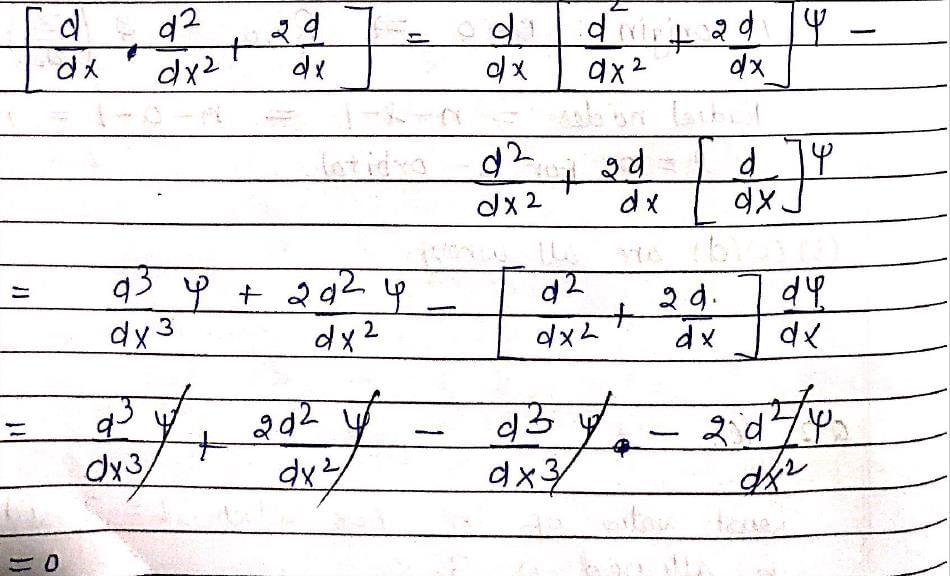 [d/dx , d²/dx² + 2d/dx] = d/dx [d²/dx² + 2d/dx] ψ −
d²/dx² + 2d/dx [d/dx] ψ
= d³ψ/dx³ + 2d²ψ/dx² − [d²/dx² + 2d/dx] dψ/dx
= d³ψ/dx³ + 2d²ψ/dx² − d³ψ/dx³ − 2d²ψ/dx²
= 0